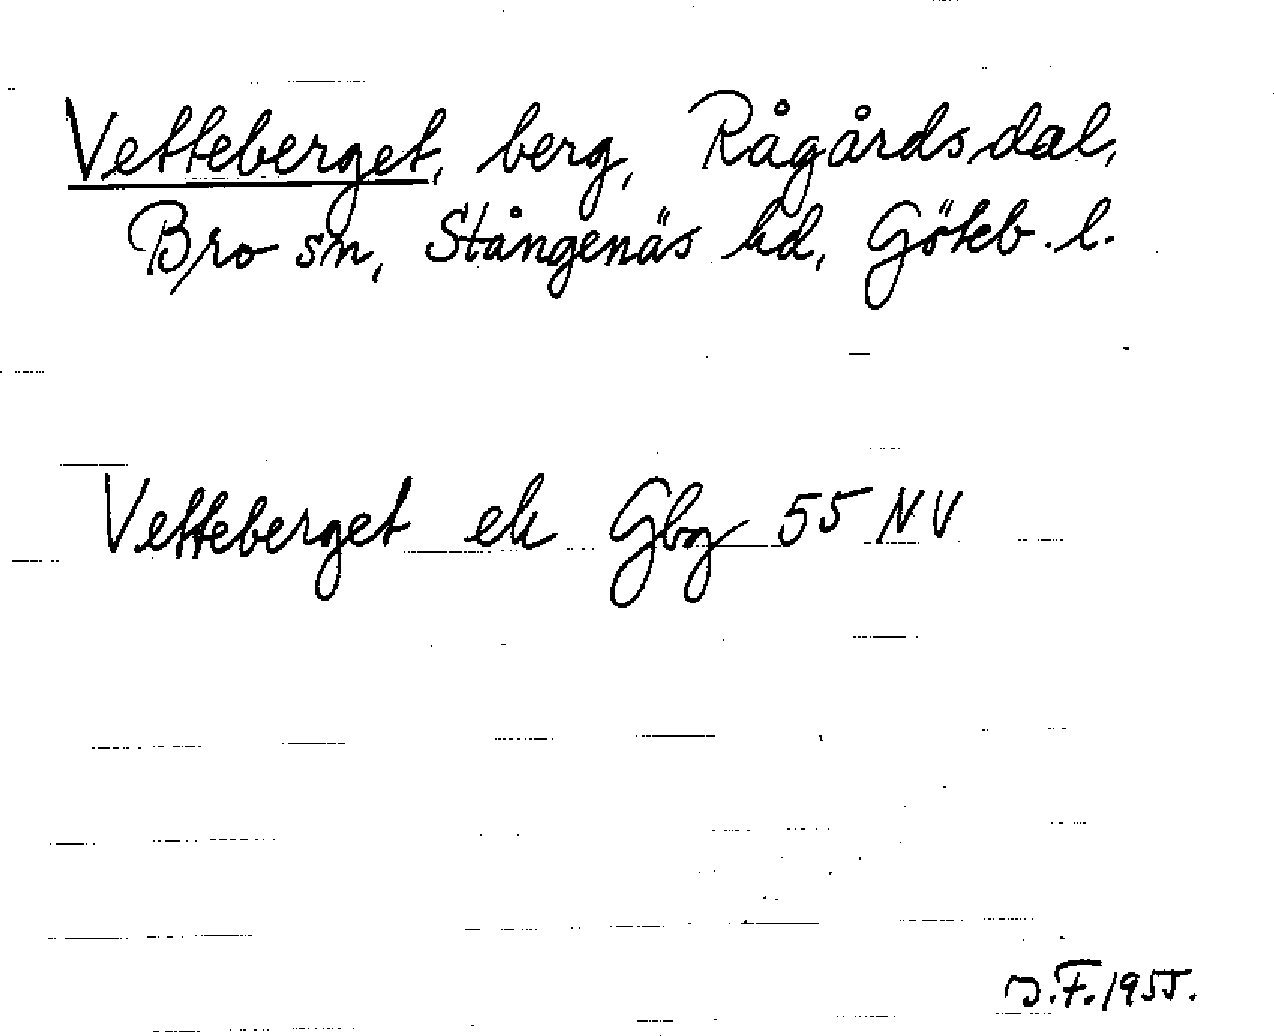 Vetteberget, berg, Rågårdsdal,
Bro sn, Stångenäs hd, Göteb. l.
Vetteberget ek Gbg 55 NV
D.F. 1955.